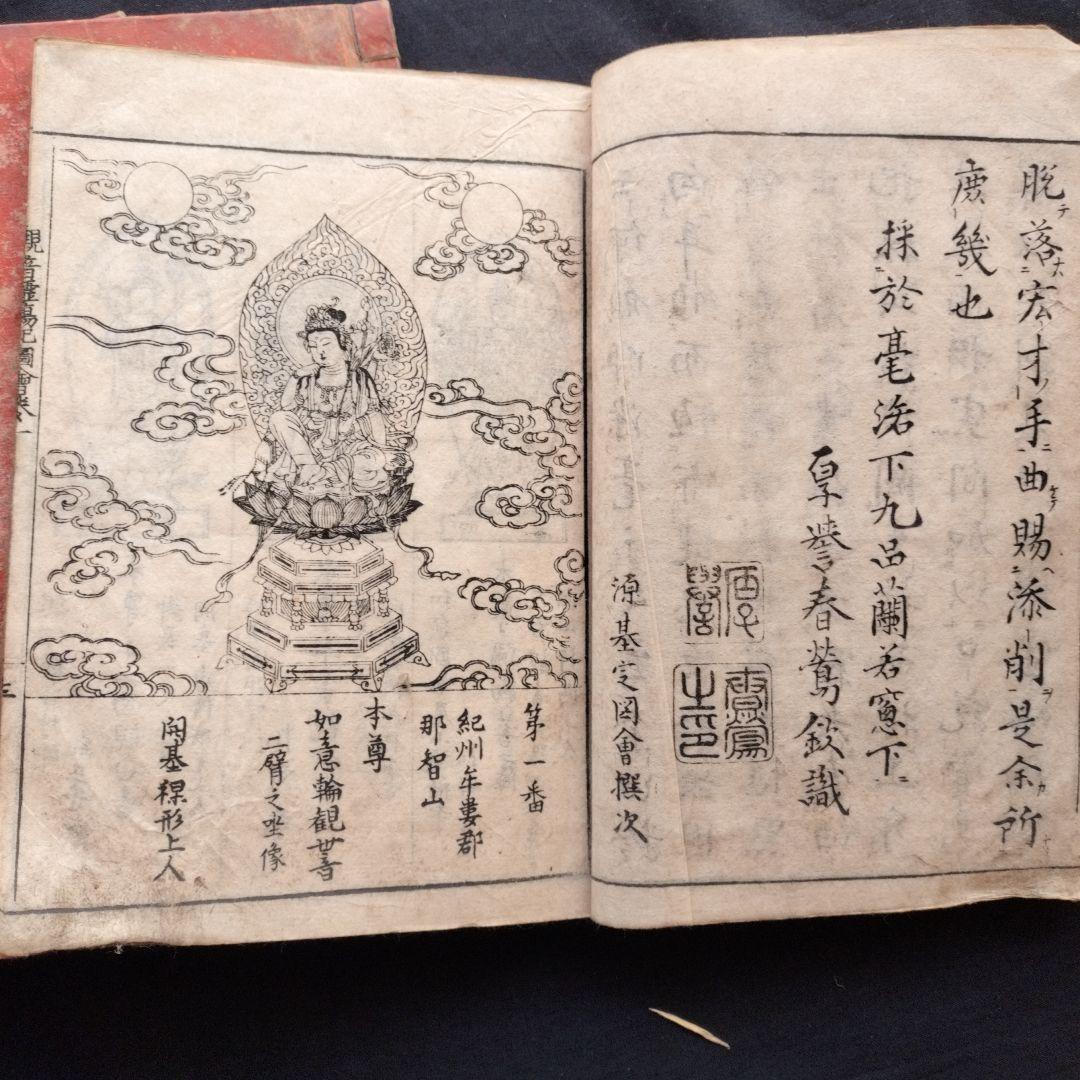 脱テ落大ニ宏才ノ手ニ曲ケテ賜ヘ添ニ削ヲ是余カ所
庶幾也
採於毫洛下九品蘭若窓下
厚誉春鶯欽識
源基定図會撰次
第一番
紀州牟婁郡
那智山
本尊
如意輪観世音
二臂之坐像
開基裸形上人
觀音霊場記圖會巻一
三